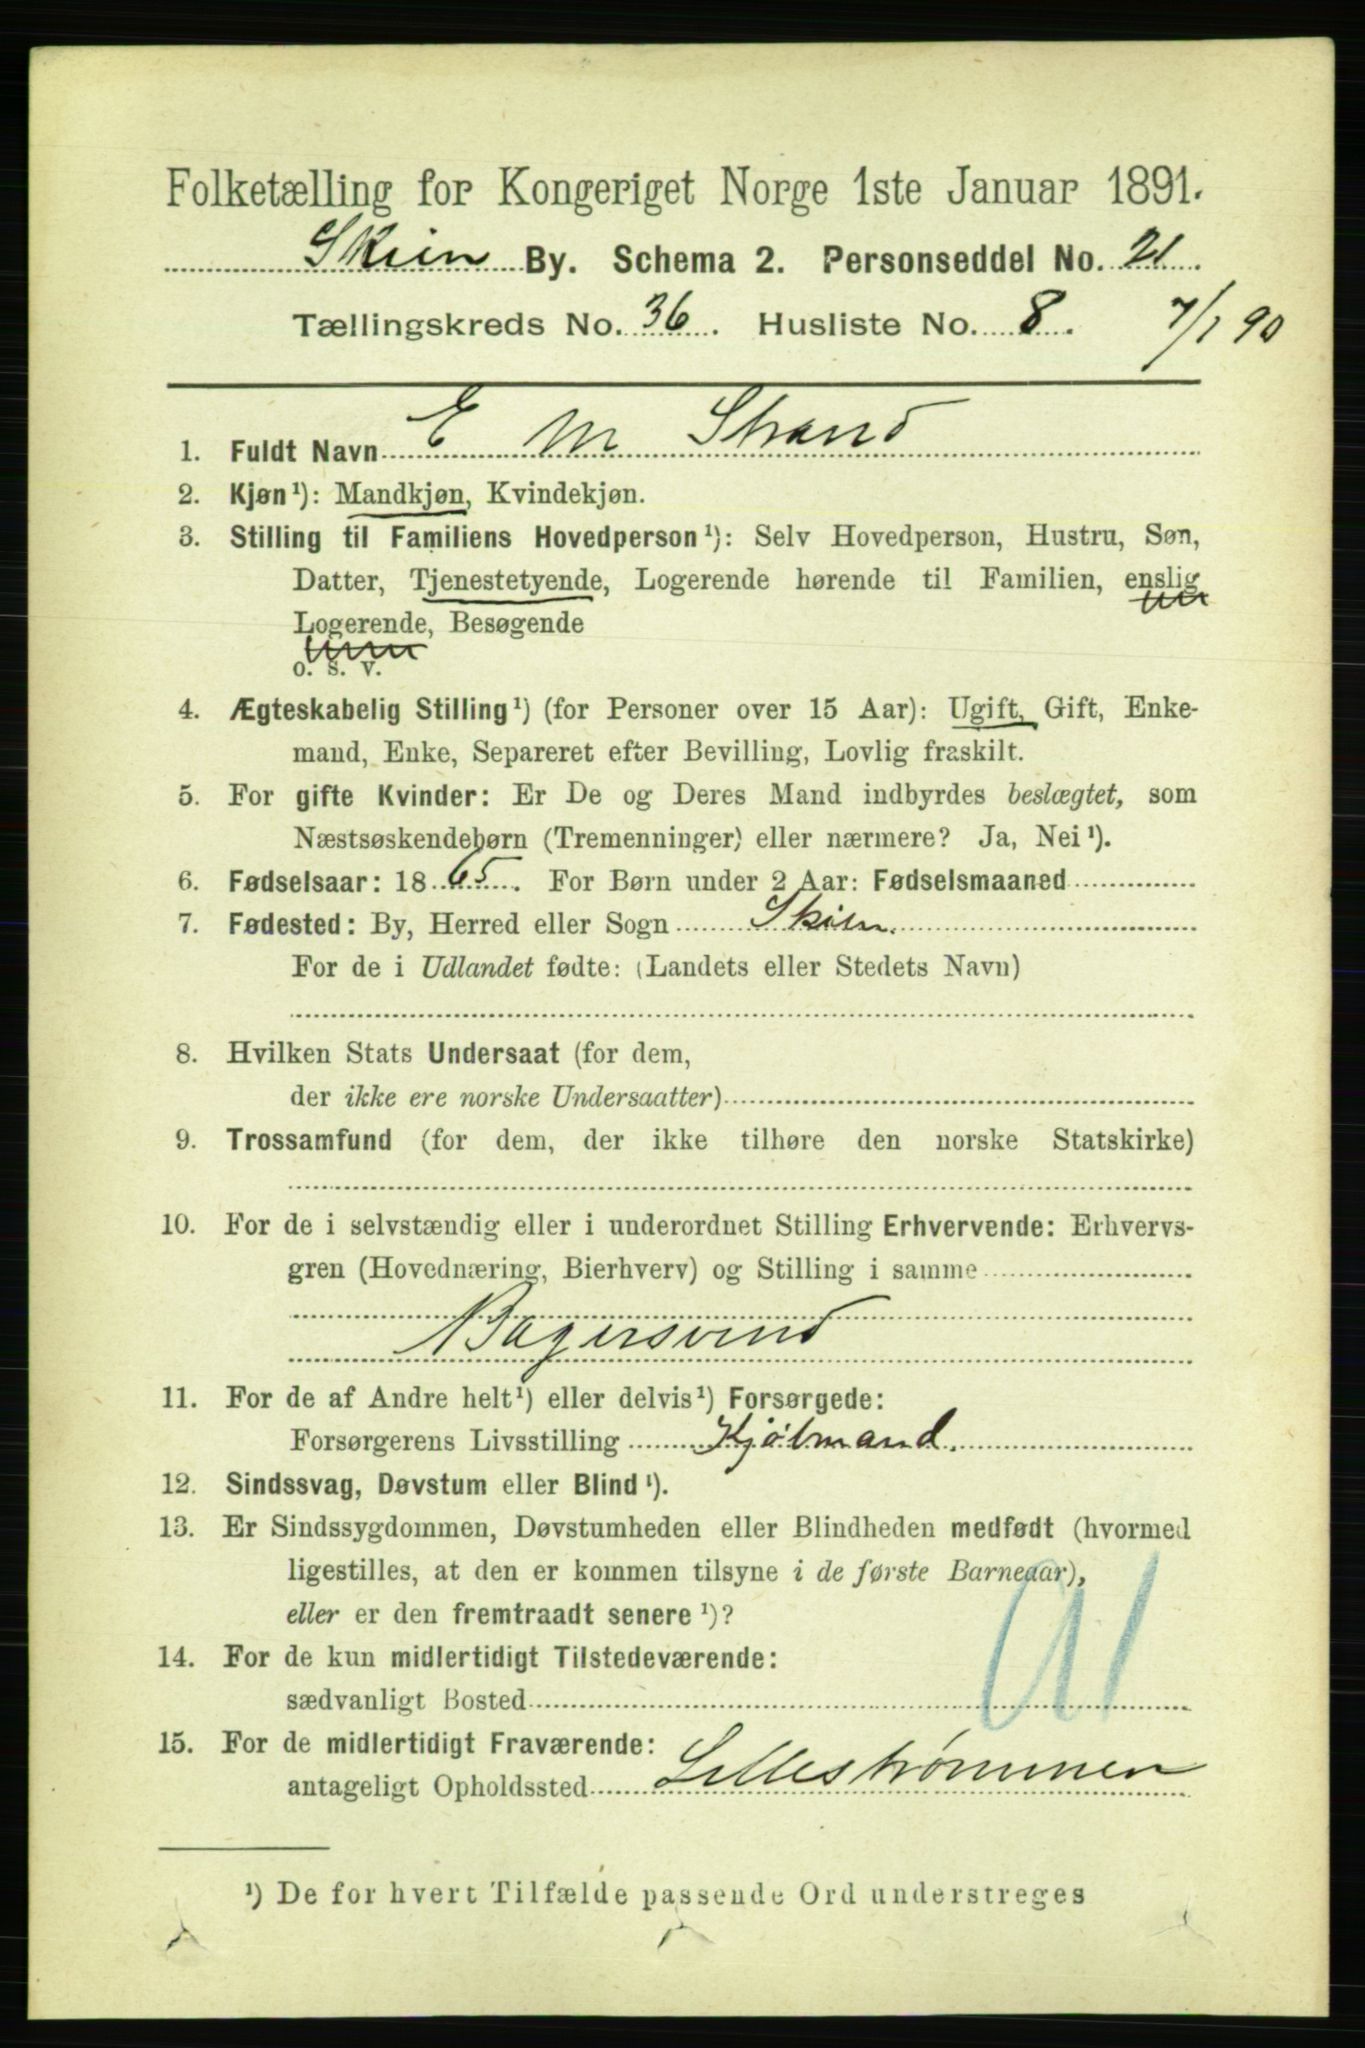 Folketælling for Kongeriget Norge 1ste Januar 1891.
Skien By. Schema 2. Personseddel No. 21
Tællingskreds No. 36. Husliste No. 8. 7/1 90
1. Fuldt Navn E M Strand
2. Kjøn¹): Mandkjøn, Kvindekjøn.
3. Stilling til Familiens Hovedperson¹): Selv Hovedperson, Hustru, Søn,
Datter, Tjenestetyende, Logerende hørende til Familien, enslig
Logerende, Besøgende
o. s. v.
4. Ægteskabelig Stilling¹) (for Personer over 15 Aar): Ugift, Gift, Enke-
mand, Enke, Separeret efter Bevilling, Lovlig fraskilt.
5. For gifte Kvinder: Er De og Deres Mand indbyrdes beslægtet, som
Næstsøskendebørn (Tremenninger) eller nærmere? Ja, Nei¹).
6. Fødselsaar: 1865. For Børn under 2 Aar: Fødselsmaaned
7. Fødested: By, Herred eller Sogn Skien.
For de i Udlandet fødte: (Landets eller Stedets Navn)
8. Hvilken Stats Undersaat (for dem,
der ikke ere norske Undersaatter)
9. Trossamfund (for dem, der ikke tilhøre den norske Statskirke)
10. For de i selvstændig eller i underordnet Stilling Erhvervende: Erhvervs-
gren (Hovednæring, Bierhverv) og Stilling i samme
Bagersvend
11. For de af Andre helt¹) eller delvis¹) Forsørgede:
Forsørgerens Livsstilling Kjøbmand.
12. Sindssvag, Døvstum eller Blind¹).
13. Er Sindssygdommen, Døvstumheden eller Blindheden medfødt (hvormed
ligestilles, at den er kommen tilsyne i de første Barneaar),
eller er den fremtraadt senere¹)?
14. For de kun midlertidigt Tilstedeværende:
sædvanligt Bosted
15. For de midlertidigt Fraværende:
antageligt Opholdssted Lillestrømmen
¹) De for hvert Tilfælde passende Ord understreges